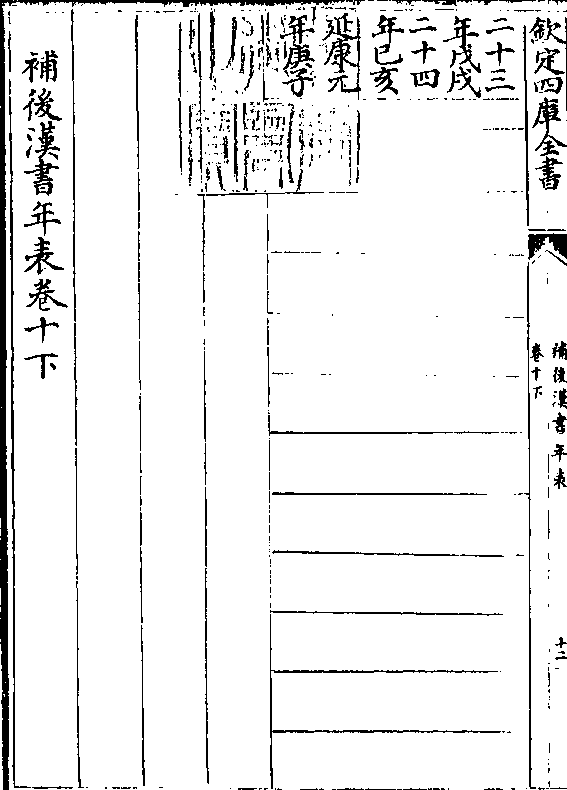 欽定四庫全書
補後漢書年表
卷十下
十二
二十三
年戊戌
二十四
年己亥
延康元
年庚子
補後漢書年表卷十下